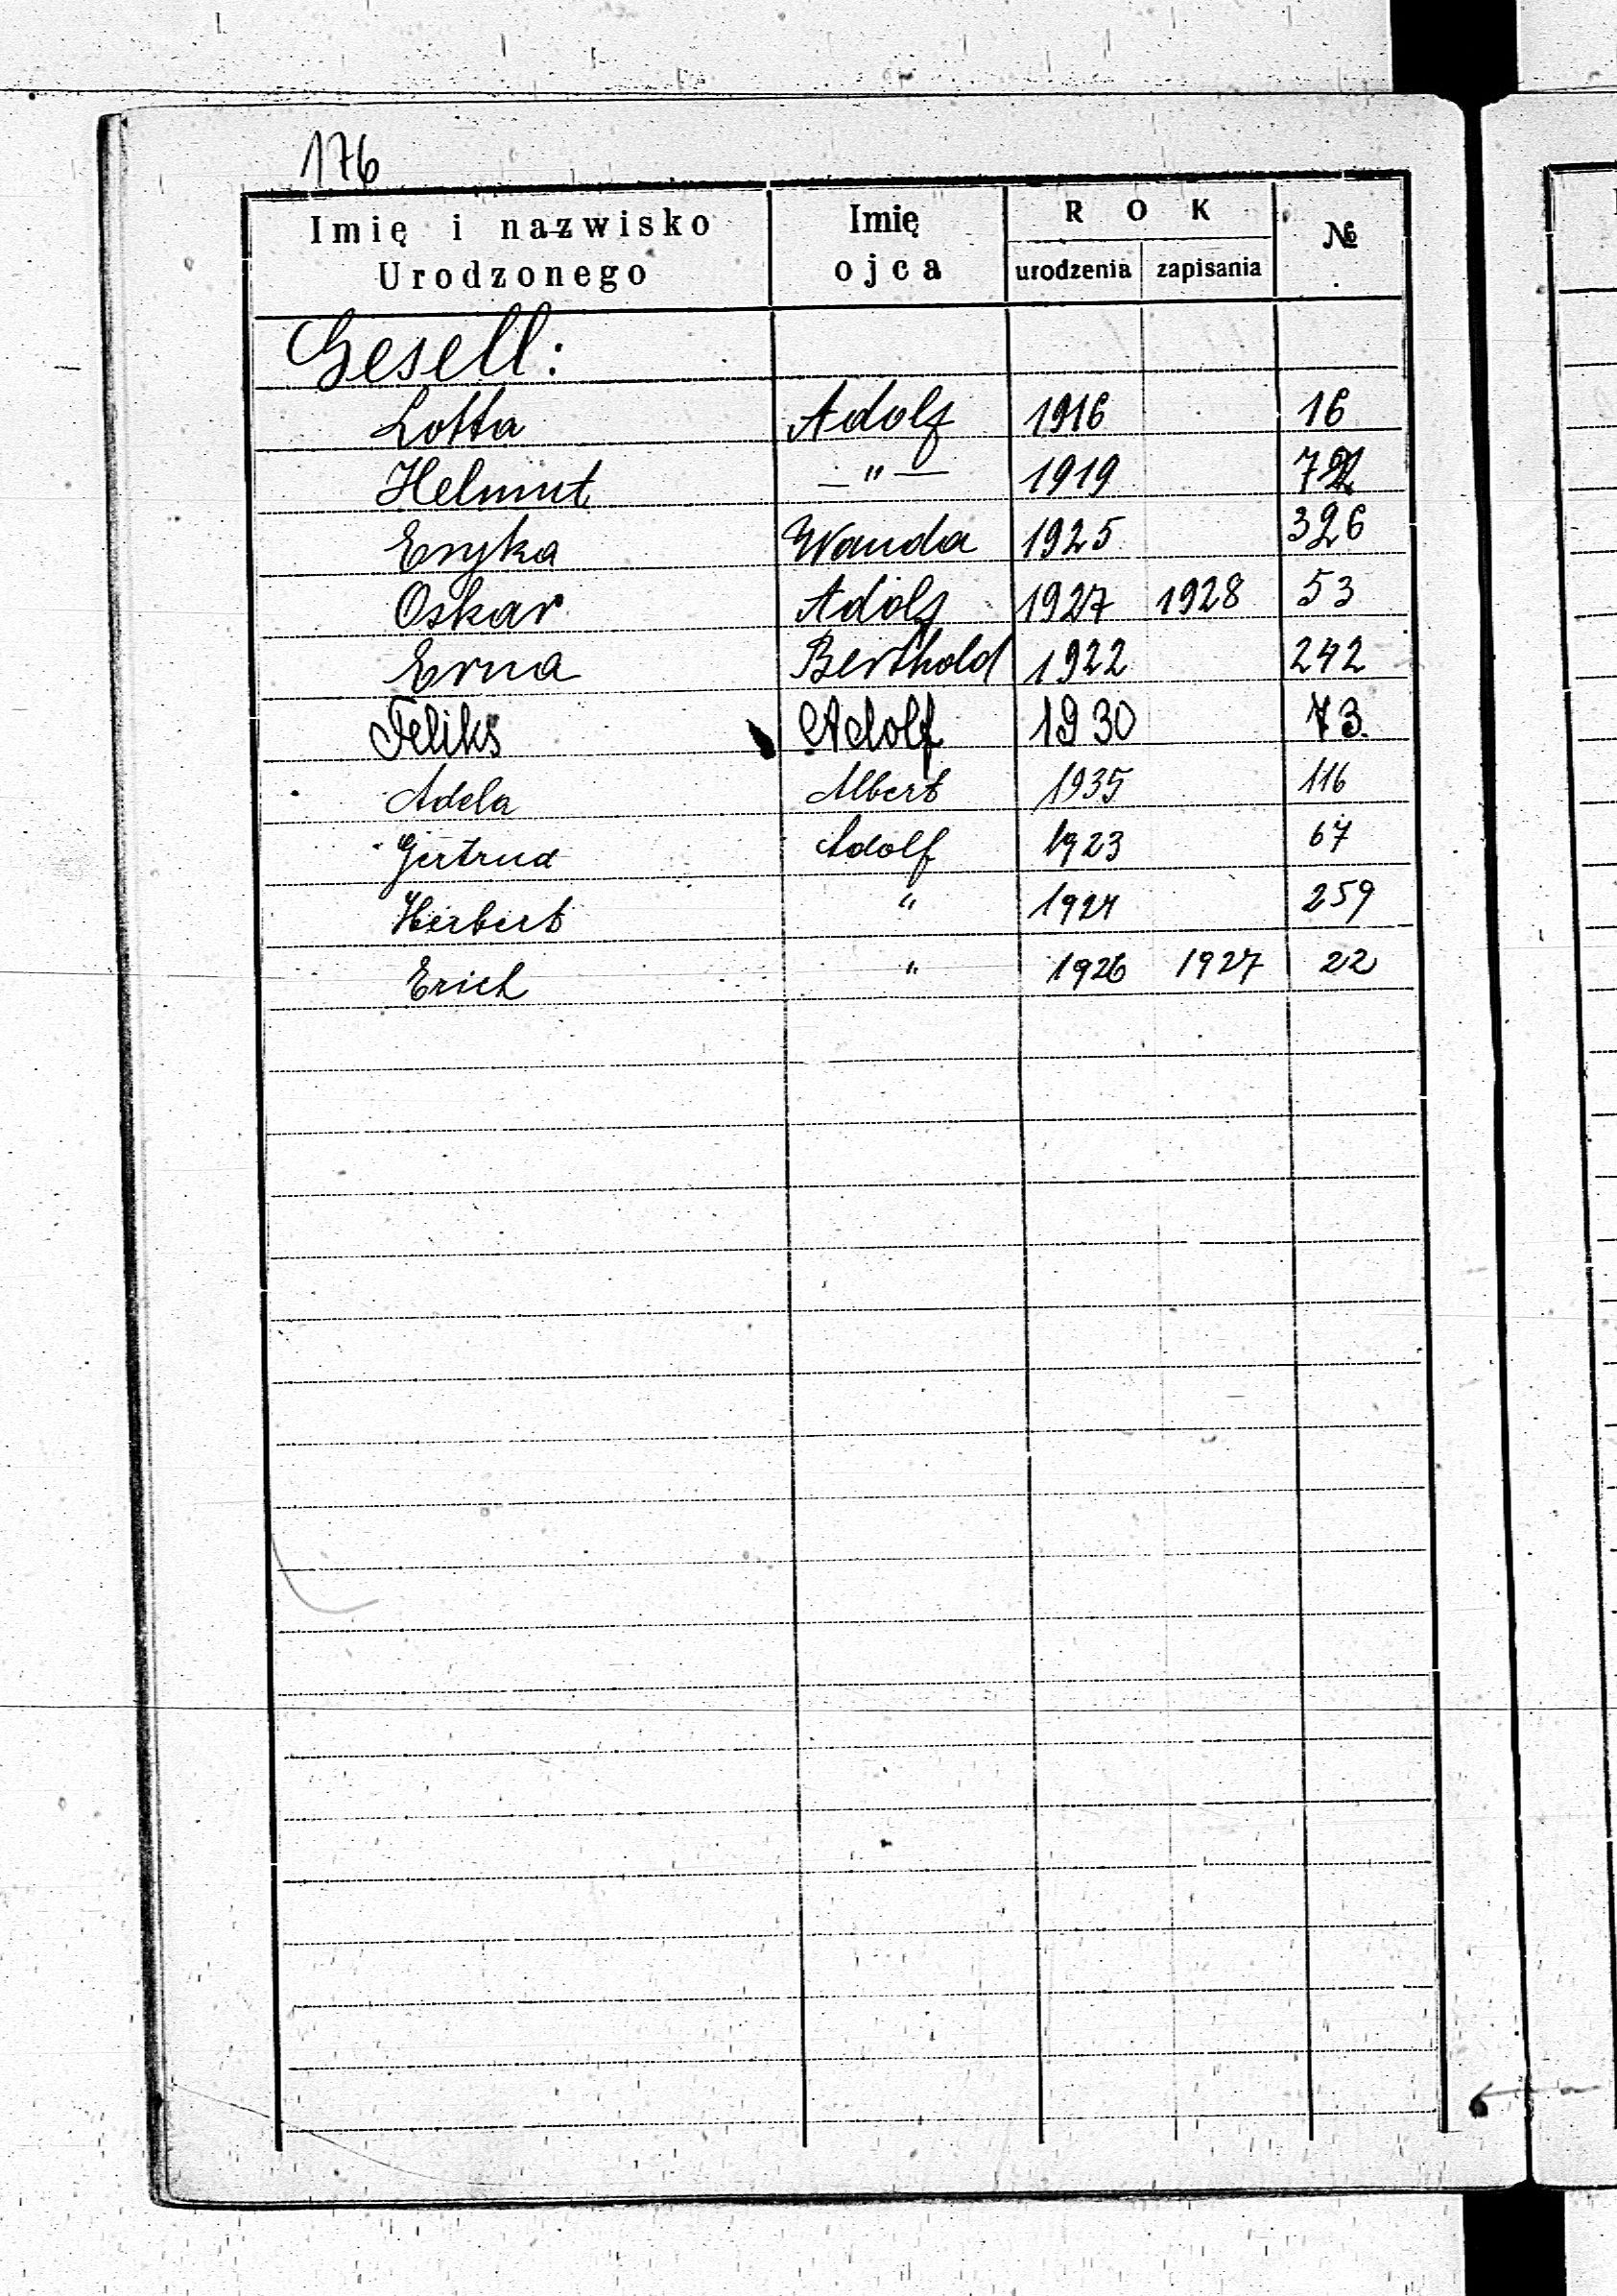 176
Imię i nazwisko Urodzonego | Imię ojca | ROK urodzenia | zapisania | №
Gesell:
Lotta Adolf 1916 16
Helmut —"— 1919
Eryka Wanda 1925 326
Oskar Adolf 1927 1928 53
Erna Berthold 1922 242
Feliks Adolf 1930 73.
Adela Albert 1935 116
Gertrud Adolf 1923 67
Herbert " 1924 259
Erich " 1926 1927 22